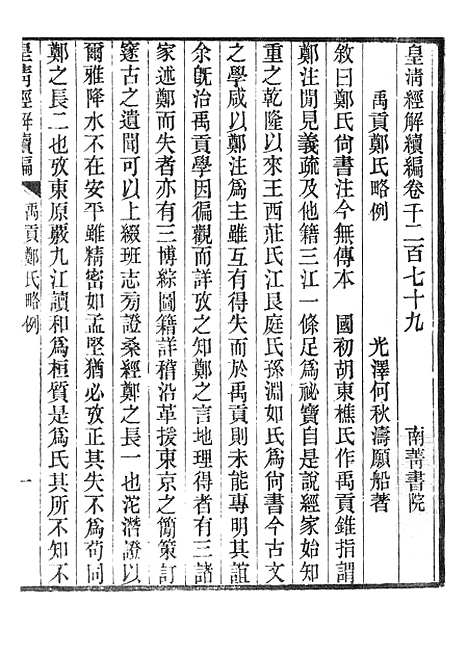 皇清經解續編卷千二百七十九　南菁書院
禹貢鄭氏略例　光澤何秋濤願船著
敘曰鄭氏尚書注今無傳本　國初胡東樵氏作禹貢錐指謂
鄭注閒見義疏及他籍三江一條足為祕寶自是說經家始知
重之乾隆以來王西莊氏江艮庭氏孫淵如氏為尚書今古文
之學咸以鄭注為主雖互有得失而於禹貢則未能專其誼
余旣治禹貢學因徧觀而詳攷之知鄭之言地理得者有三諸
家述鄭而失者亦有三博綜圖籍詳稽沿革援東京之簡策訂
邃古之遺聞可以上綴班志旁證桑經鄭之長一也沱潛證以
爾雅降水不在安平雖精密如孟堅猶必攷正其失不為苟同
鄭之長二也攷東原覈九江讀和為桓質是為氏其所不知不
皇清經解續編
禹貢鄭氏略例
一